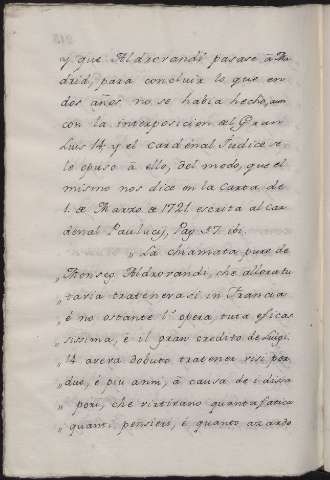 y que Aldrovandi pasase a Ma
drid, para concluir lo que en
dos años no se habia hecho, aun
con la interposicion del Gran
Luis 14 y el cardenal Judice se
le opuso à ello, del modo, que el
mismo nos dice en la Carta de
1. de Marzo de 1721 escrita al Car
denal Paulucij, Pag. 57. ibi.
„ La chiamata pure de
„ Monseg. Aldrovandi, che allora tu
„ taria tratenerasi in Francia
„ è no ostante l'opera tuta eficas
„ sissima, è il gran credito de Luigi
„ 14 avera dobuto tratener visi por
„ due, è piu anni, à causa de i dissa
„ pori, che virtirano quanta fatica
„ quanti pensieri, è quanto azardo